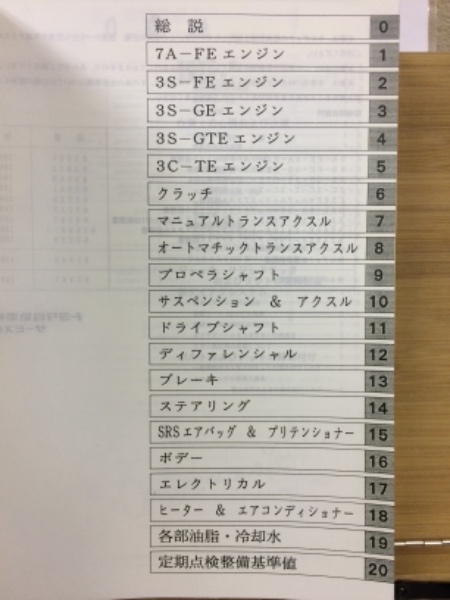 総 説 0
7A－FE エンジン 1
3S－FE エンジン 2
3S－GE エンジン 3
3S－GTE エンジン 4
3C－TE エンジン 5
クラッチ 6
マニュアルトランスアクスル 7
オートマチックトランスアクスル 8
プロペラシャフト 9
サスペンション ＆ アクスル 10
ドライブシャフト 11
ディファレンシャル 12
ブレーキ 13
ステアリング 14
SRSエアバッグ ＆ プリテンショナー 15
ボデー 16
エレクトリカル 17
ヒーター ＆ エアコンディショナー 18
各部油脂・冷却水 19
定期点検整備基準値 20